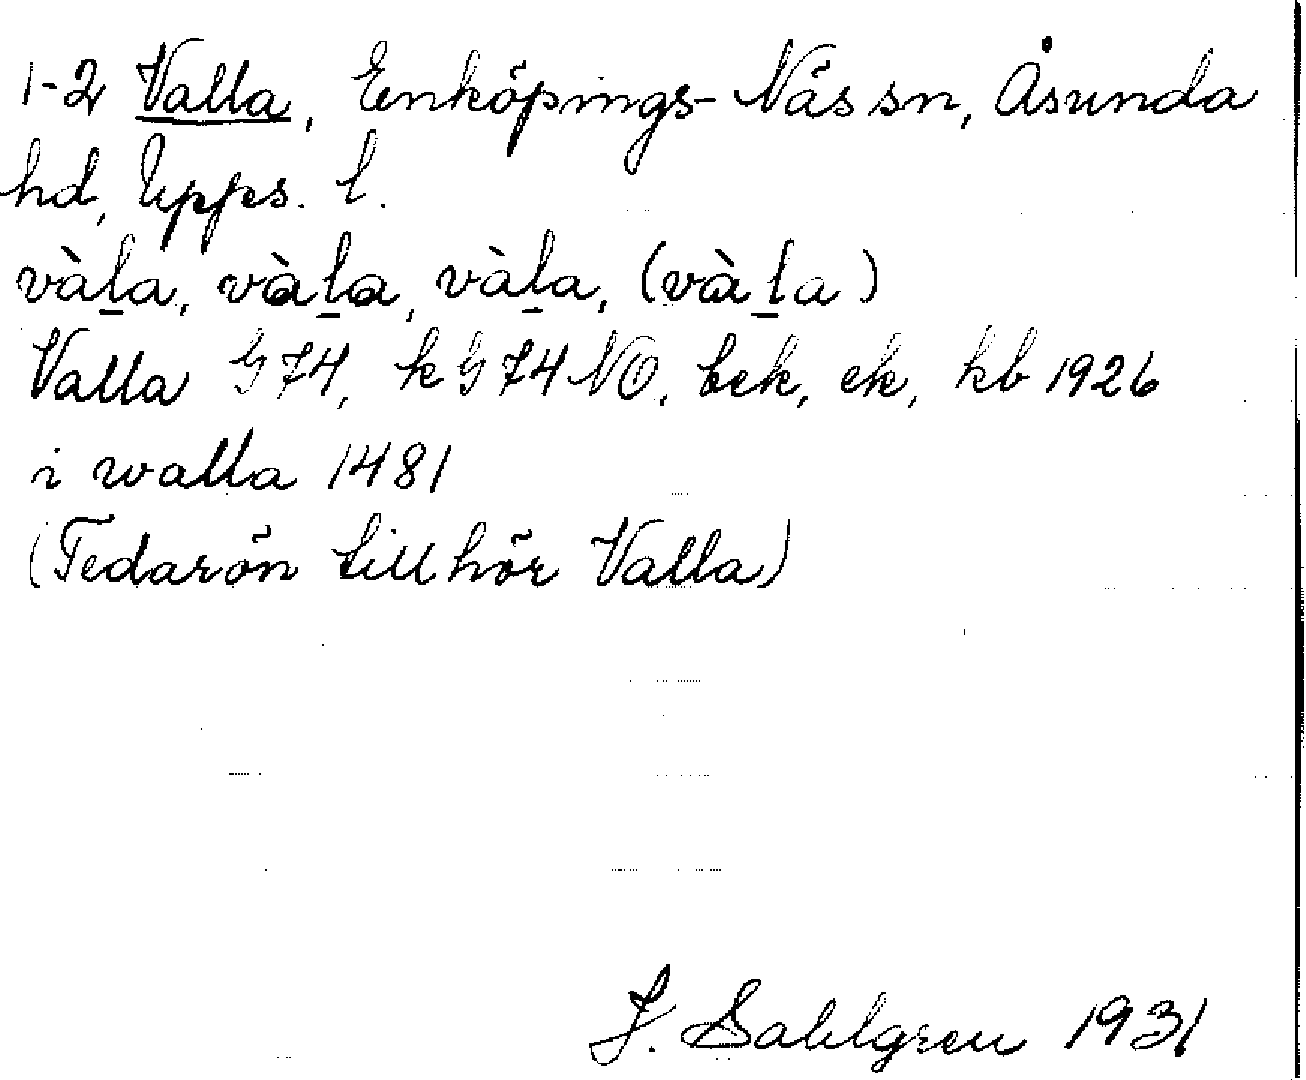 1-2 Valla, Enköpings-Näs sn, Åsunda
hd, Upps. l.
vàl̠a, vàl̠a, vàl̠a, (vàl̠a)
Valla G74, k G74 NO, bek, ek, kb 1926
i walla 1481
(Tedarön tillhör Valla)
J. Sahlgren 1931